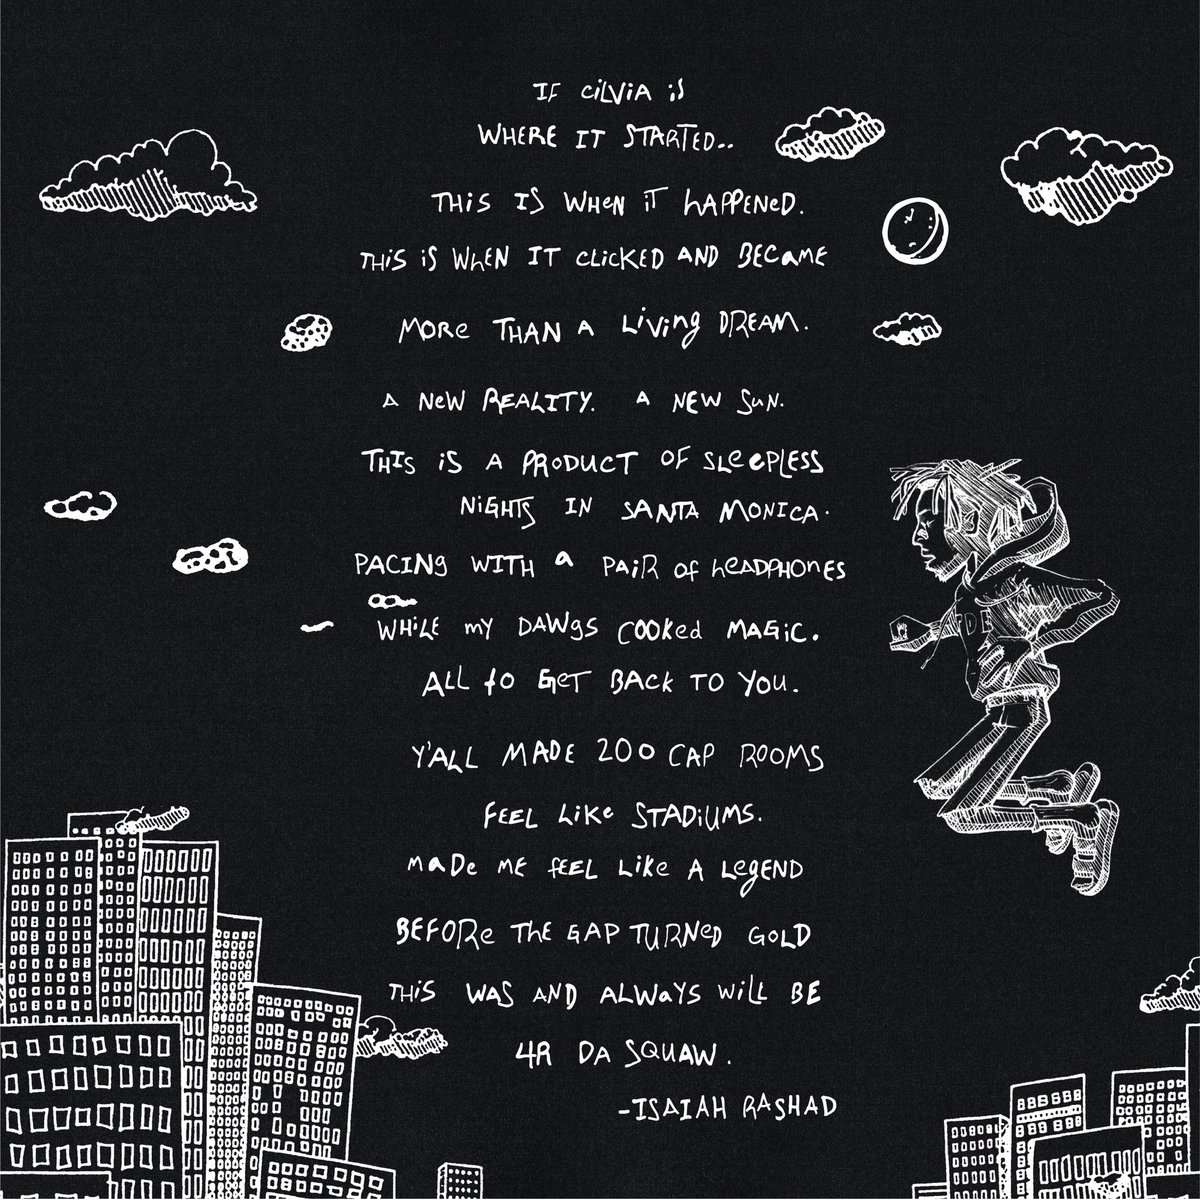 IF CiLViA iS
WHERE IT STARTED..
THiS IS WHeN iT HAPPENeD.
THiS iS WhEN IT CLiCKED AND BECaME
MORe THAN A LiViNg DREAM.
A NeW REALITY. A NEW SuN.
THIS iS A PRODUCT OF SLeePLESS
NiGHTS IN SANTA MONICA.
PACINg WITH a PAiR of HeADPHONES
WHiLE mY DAWgS COOKed MAGiC.
ALL to GeT BACK TO YOU.
Y'ALL MADE 200 CAP ROOMS
FEEL LiKe STADiUMS.
MaDe ME fEEL LiKe A LEgEND
BEFORe THE GAP TURNeD GOLD
THiS WAS AND ALWaYS WiLL BE
4R DA SQUAW.
-ISAIAH RASHAD
TDE